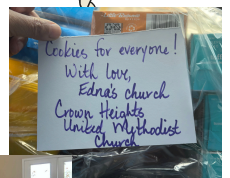 Cookies for everyone!
With love,
Edna's church
Crown Heights
United Methodist
Church